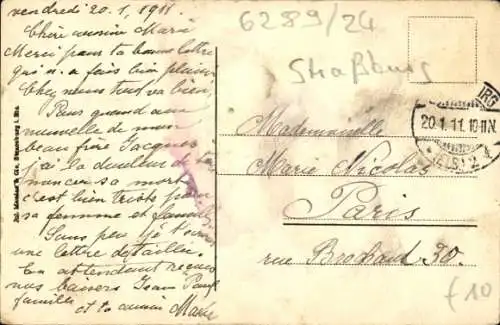 vendredi 20. 1. 1911
Chère cousine Marie
Merci pour ta bonne lettre
qui m'a fais bien plaisir
Chez nous tout va bien,
Pour quand aux
nouvelle de mon
beau frère Jacques
j'ai la douleur de
sa mort
c'est bien triste pour
sa femme et famille
Sans peu je t'
une lettre detaillée.
En attendant
nos baisers Jean Paul
famille
et ta cousine Marie
6289/24
Straßburg
20.1.11. 10-11N.
Mademoiselle
Marie Nicolas
Paris
rue Brochant 30.
f10